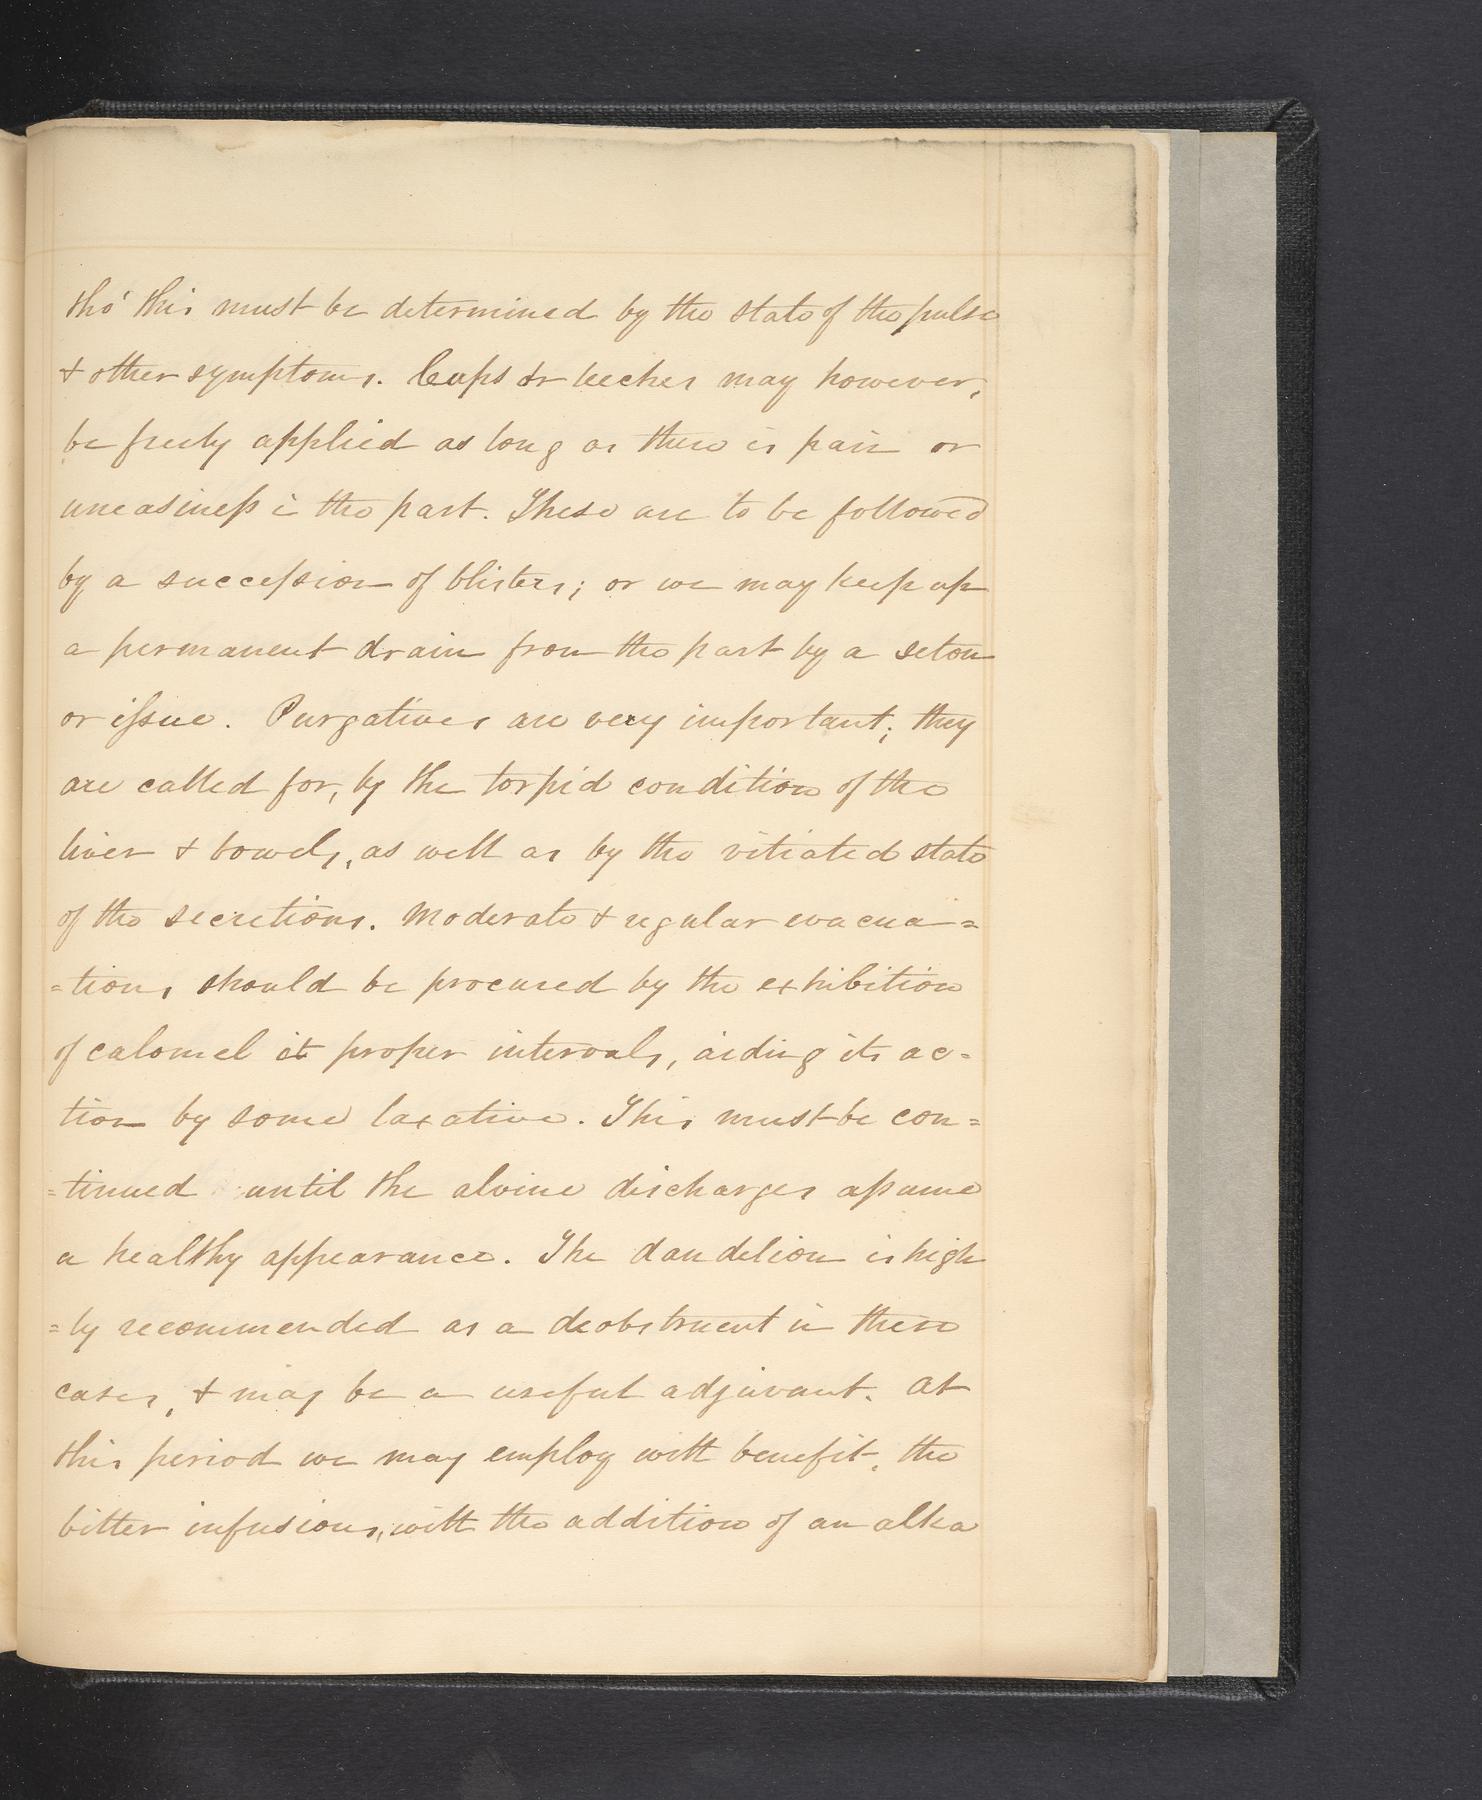 tho' this must be determined by the state of the pulse
& other symptoms. Cups or leeches may however,
be freely applied as long as there is pain or
uneasiness in the part. These are to be followed
by a succession of blisters; or we may keep up
a permanent drain from the part by a seton
or issue. Purgatives are very important; they
are called for, by the torpid condition of the
liver & bowels, as well as by the vitiated state
of the secretions. Moderate & regular evacua=
=tions should be procured by the exhibition
of calomel at proper intervals, aiding its ac=
tion by some laxative. This must be con=
=tinued until the alvine discharges assume
a healthy appearance. The dandelion is high
=ly recommended as a deobstruent in these
cases, & may be a useful adjuvant. At
this period we may employ with benefit, the
bitter infusions, with the addition of an alka